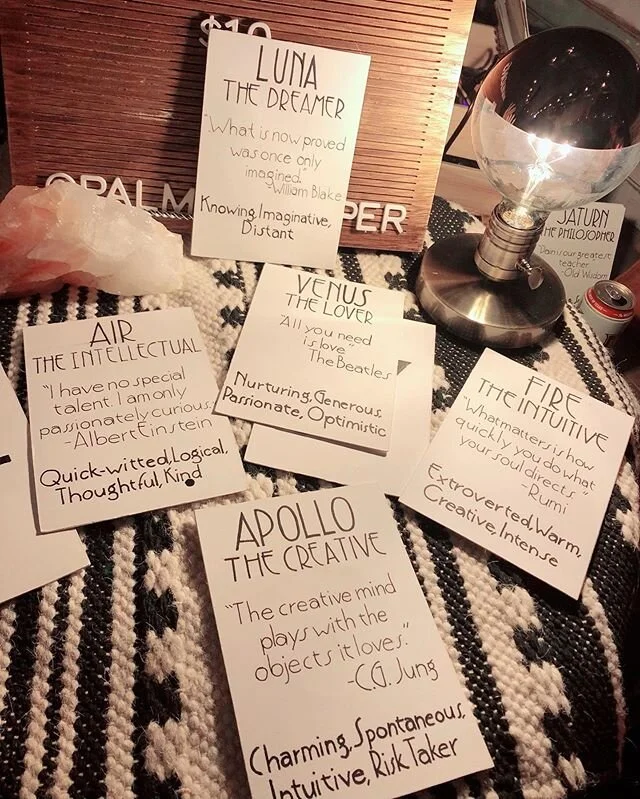 $10
LUNA
THE DREAMER
"What is now proved
was once only
imagined."
-William Blake
Knowing, Imaginative,
Distant
PER
SATURN
THE PHILOSOPHER
"Pain is our greatest
teacher"
-Old Wisdom
VENUS
THE LOVER
"All you need
is love"
The Beatles
Nurturing, Generous,
Passionate, Optimistic
AIR
THE INTELLECTUAL
"I have no special
talent. I am only
passionately curious."
-Albert Einstein
Quick-witted, Logical,
Thoughtful, Kind
FIRE
THE INTUITIVE
"What matters is how
quickly you do what
your soul directs."
-Rumi
Extroverted, Warm,
Creative, Intense
APOLLO
THE CREATIVE
"The creative mind
plays with the
objects it loves."
-C.G. Jung
Charming, Spontaneous,
Intuitive, Risk Taker